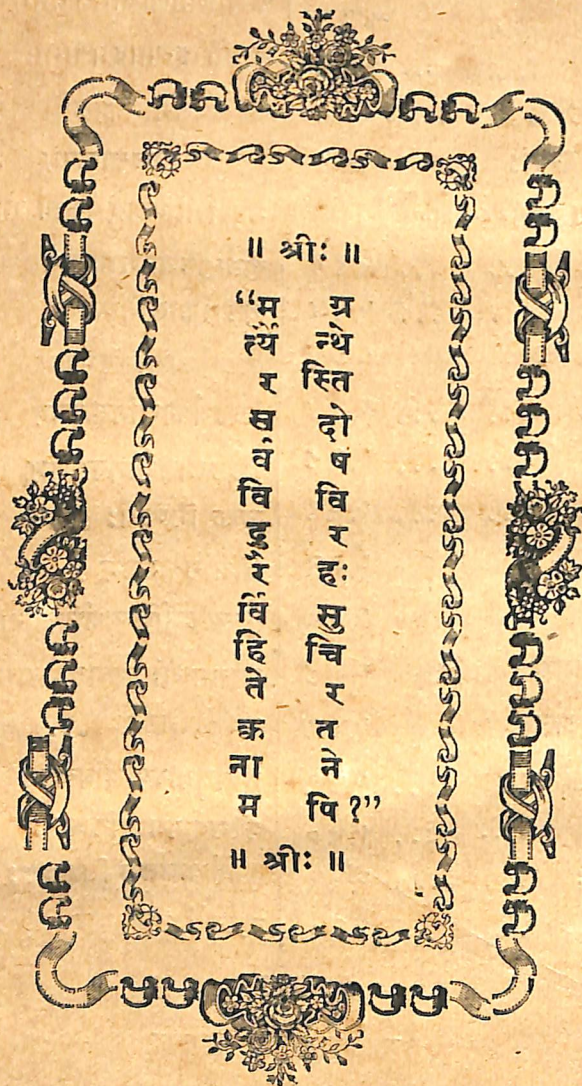 ॥ श्रीः ॥
“मर्त्यैरसर्वविदुरैर्विहिते क्व नाम
ग्रन्थेस्ति दोषविरहः सुचिरतनेपि ?”
॥ श्रीः ॥